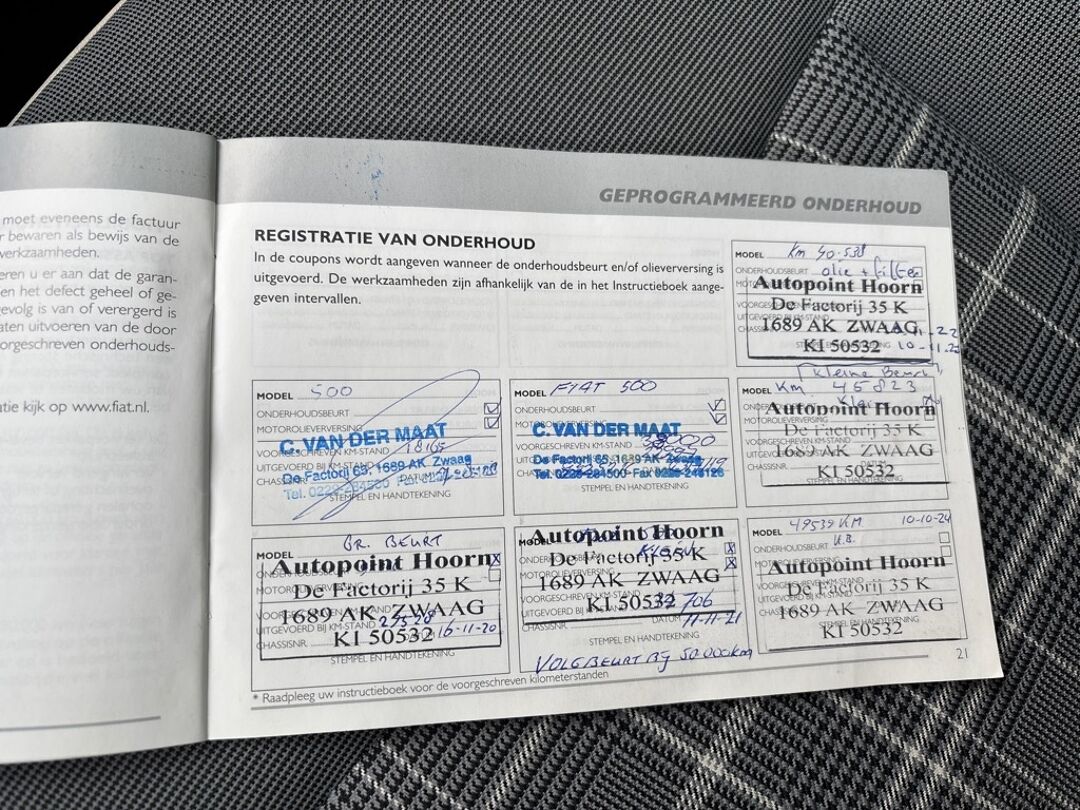 moet eveneens de factuur
bewaren als bewijs van de
werkzaamheden.
eren u er aan dat de garan-
en het defect geheel of ge-
evolg is van of verergerd is
aten uitvoeren van de door
orgeschreven onderhouds-
atie kijk op www.fiat.nl.
GEPROGRAMMEERD ONDERHOUD
REGISTRATIE VAN ONDERHOUD
In de coupons wordt aangeven wanneer de onderhoudsbeurt en/of olieverversing is
uitgevoerd. De werkzaamheden zijn afhankelijk van de in het Instructieboek aange-
geven intervallen.
MODEL Km 40.538
ONDERHOUDSBEURT olie + filter
Autopoint Hoorn
De Factorij 35 K
1689 AK ZWAAG
KI 50532
MODEL 500
ONDERHOUDSBEURT
MOTOROLIEVERVERSING
C. VAN DER MAAT
VOORGESCHREVEN KM-STAND
UITGEVOERD BIJ KM-STAND
De Factorij 65, 1689 AK Zwaag
Tel. 0229-284500
STEMPEL EN HANDTEKENING
MODEL FIAT 500
ONDERHOUDSBEURT
C. VAN DER MAAT
VOORGESCHREVEN KM-STAND
De Factorij 65, 1689 AK Zwaag
Tel. 0229-284500 Fax 0229-248126
STEMPEL EN HANDTEKENING
Kleine Beurt
MODEL Km 45823
Autopoint Hoorn
De Factorij 35 K
1689 AK ZWAAG
KI 50532
MODEL BR. BEURT
Autopoint Hoorn
MOTOROLIEVERVERSING
De Factorij 35 K
1689 AK ZWAAG
UITGEVOERD BIJ KM-STAND
KI 50532 16-11-20
STEMPEL EN HANDTEKENING
Autopoint Hoorn
De Factorij 35 K
MOTOROLIEVERVERSING
1689 AK ZWAAG
VOORGESCHREVEN KM-STAND
KI 50532
UITGEVOERD BIJ KM-STAND 706
CHASSISNR. DATUM 11-11-21
STEMPEL EN HANDTEKENING
VOLGBEURT Bij 50.000km
MODEL 49539 KM 10-10-24
ONDERHOUDSBEURT K.B.
Autopoint Hoorn
De Factorij 35 K
1689 AK ZWAAG
KI 50532
* Raadpleeg uw instructieboek voor de voorgeschreven kilometerstanden
21